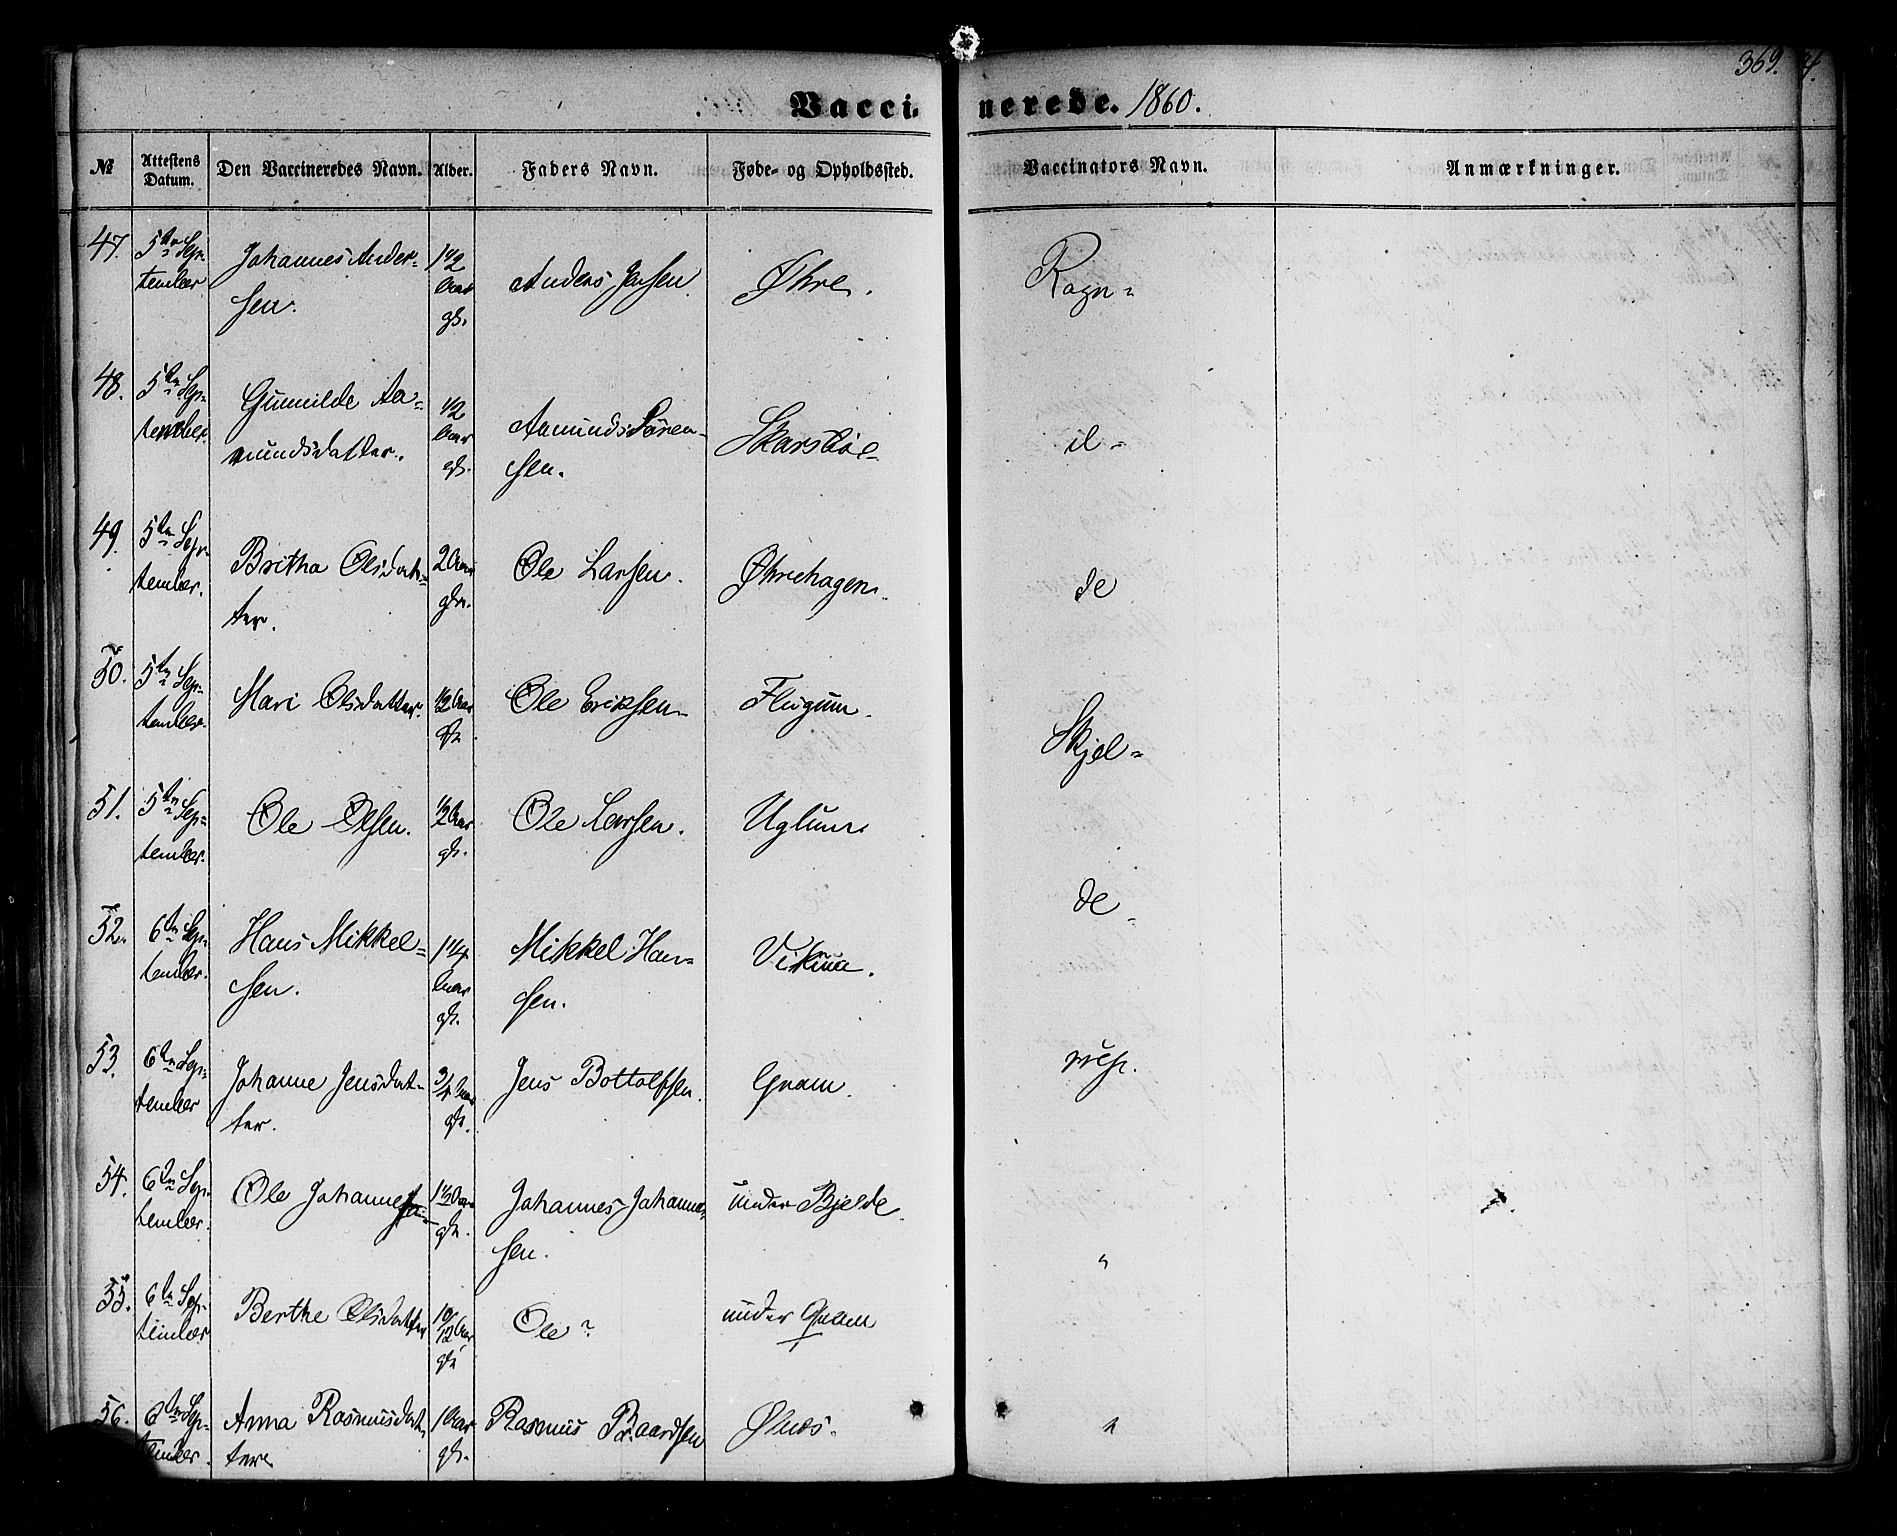 369.
Vacci- nerede. 1860.
№ Attestens Datum. Den Vaccineredes Navn. Alder. Faders Navn. Føde- og Opholdssted. Vaccinators Navn. Anmærkninger.
47. 5te Sep-
tember Johannes Ander-
sen. 1 1/2
Aar
gl. Anders Jensen. Øhre. Ragn-
48. 5te Sep-
tember Gunnilde Aa-
mundsdatter. 1/2
Aar
gl. Aamund Sören-
sen. Skarsbøe il-
49. 5te Sep-
tember. Britha Olsdat-
ter. 2 Aar
gl. Ole Larsen. Øhrehagen. de
50. 5te Sep-
tember. Mari Olsdatter. 1/2 Aar
gl. Ole Eriksen Flugum. Skjel-
51. 5te Sep-
tember. Ole Olsen. 1/2 Aar
gl. Ole Larsen. Uglum de
52. 6te Sep-
tember. Hans Mikkel-
sen. 1 1/4
Aar
gl. Mikkel Han-
sen. Vikum.
53. 6te Sep-
tember Johanne Jensdat-
ter. 3/4 Aar
gl. Jens Bottolfsen. Qvam.
54. 6te Sep-
tember. Ole Johannessen Aar
gl. Johannes Johannes-
sen. under Bjelde "
55. 6te Sep-
tember Berthe Olsdatter 10/12 Aar
gl. Ole? under Qvam
56. 6te Sep-
tember. Anna Rasmusdat-
ter. 1 Aar
gl. Rasmus Baardsen Ølnes. "